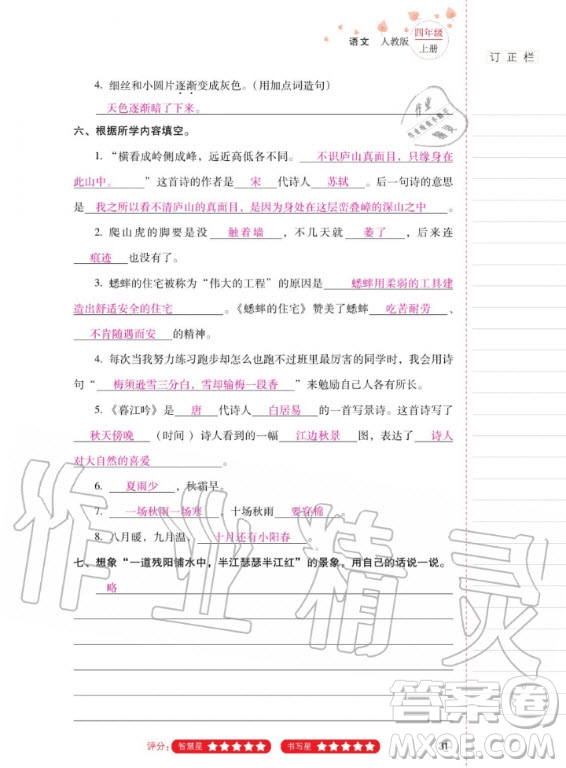 语文 人教版 四年级 上册
订正栏
4. 细丝和小圆片逐渐变成灰色。（用加点词造句）
天色逐渐暗了下来。
六、根据所学内容填空。
1. “横看成岭侧成峰，远近高低各不同。不识庐山真面目，只缘身在
此山中。”这首诗的作者是 宋 代诗人 苏轼 。后一句诗的意思
是 我之所以看不清庐山的真面目，是因为身处在这层峦叠嶂的深山之中 。
2. 爬山虎的脚要是没 触着墙 ，不几天就 萎了 ，后来连
痕迹 也没有了。
3. 蟋蟀的住宅被称为“伟大的工程”的原因是 蟋蟀用柔弱的工具建
造出舒适安全的住宅 。《蟋蟀的住宅》赞美了蟋蟀 吃苦耐劳 、
不肯随遇而安 的精神。
4. 每次当我努力练习跑步却怎么也跑不过班里最厉害的同学时，我会用诗
句“ 梅须逊雪三分白，雪却输梅一段香 ”来勉励自己人各有所长。
5. 《暮江吟》是 唐 代诗人 白居易 的一首写景诗。这首诗写了
秋天傍晚 （时间）诗人看到的一幅 江边秋景 图，表达了 诗人
对大自然的喜爱 。
6. 夏雨少 ，秋霜早。
7. 一场秋雨一场寒 ，十场秋雨 要穿棉 。
8. 八月暖，九月温， 十月还有小阳春 。
七、想象“一道残阳铺水中，半江瑟瑟半江红”的景象。用自己的话说一说。
略
评分： 智慧星 ★★★★★ 书写星 ★★★★★
31
作业精灵
答案圈